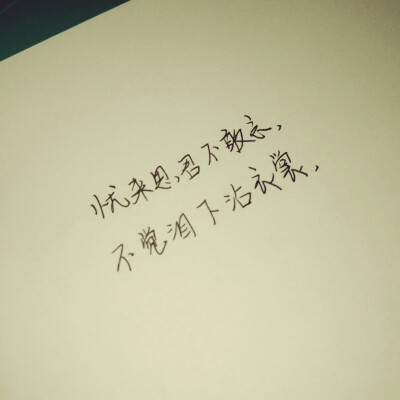 忧来思君不敢忘，
不觉泪下沾衣裳，